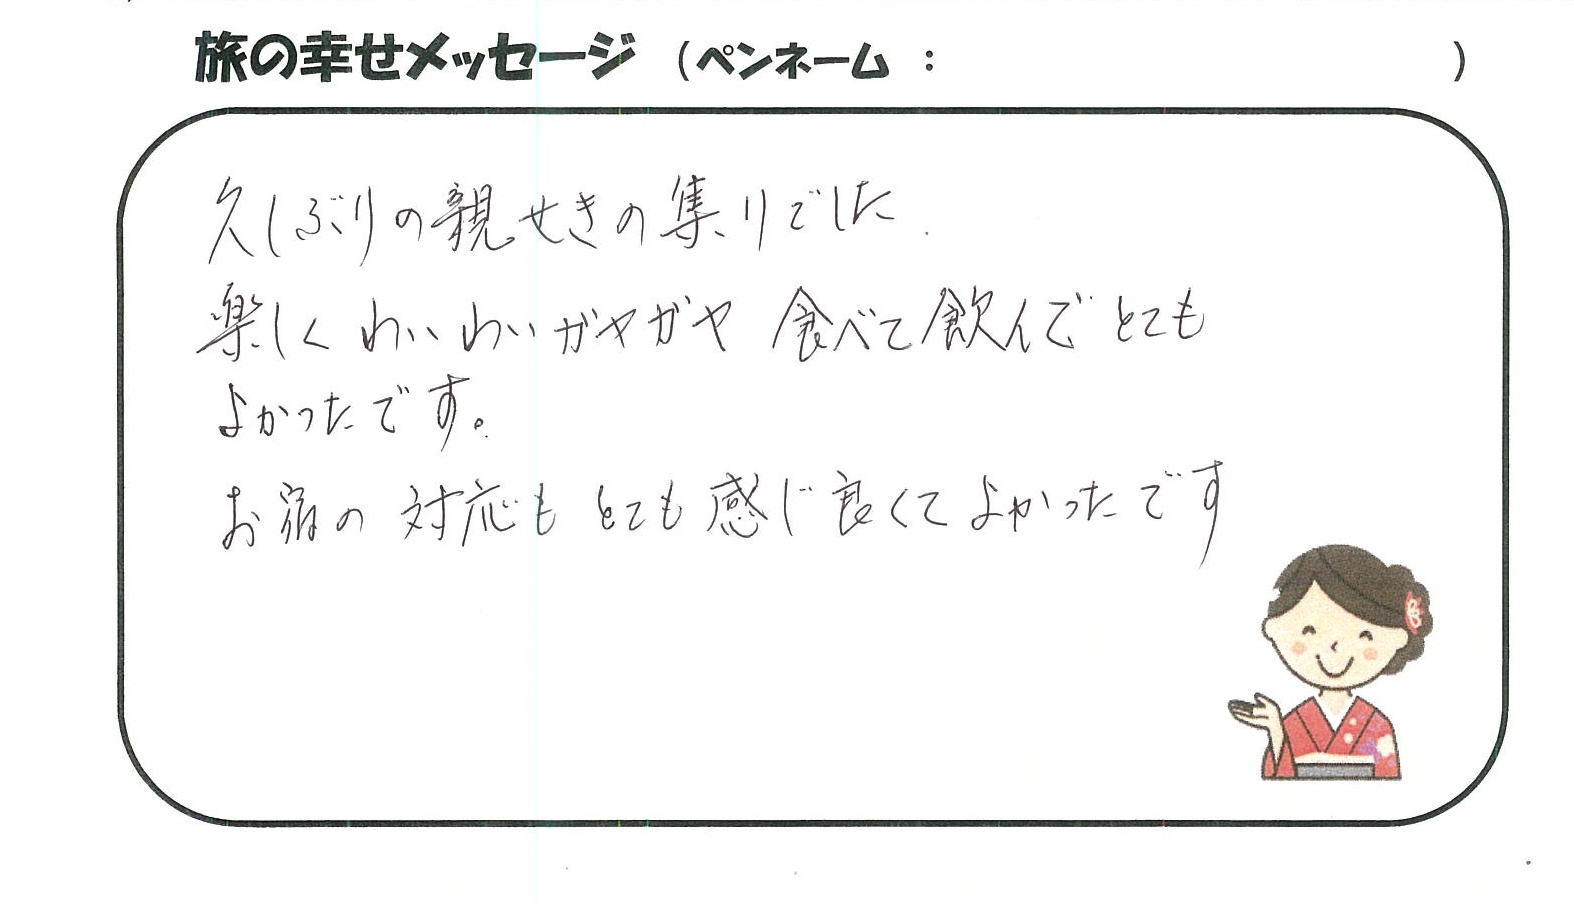 旅の幸せメッセージ （ペンネーム：　　　　　　　　）
久しぶりの親せきの集りでした.
楽しくわいわいガヤガヤ 食べて飲んでとても
よかったです。
お宿の対応もとても感じ良くてよかったです